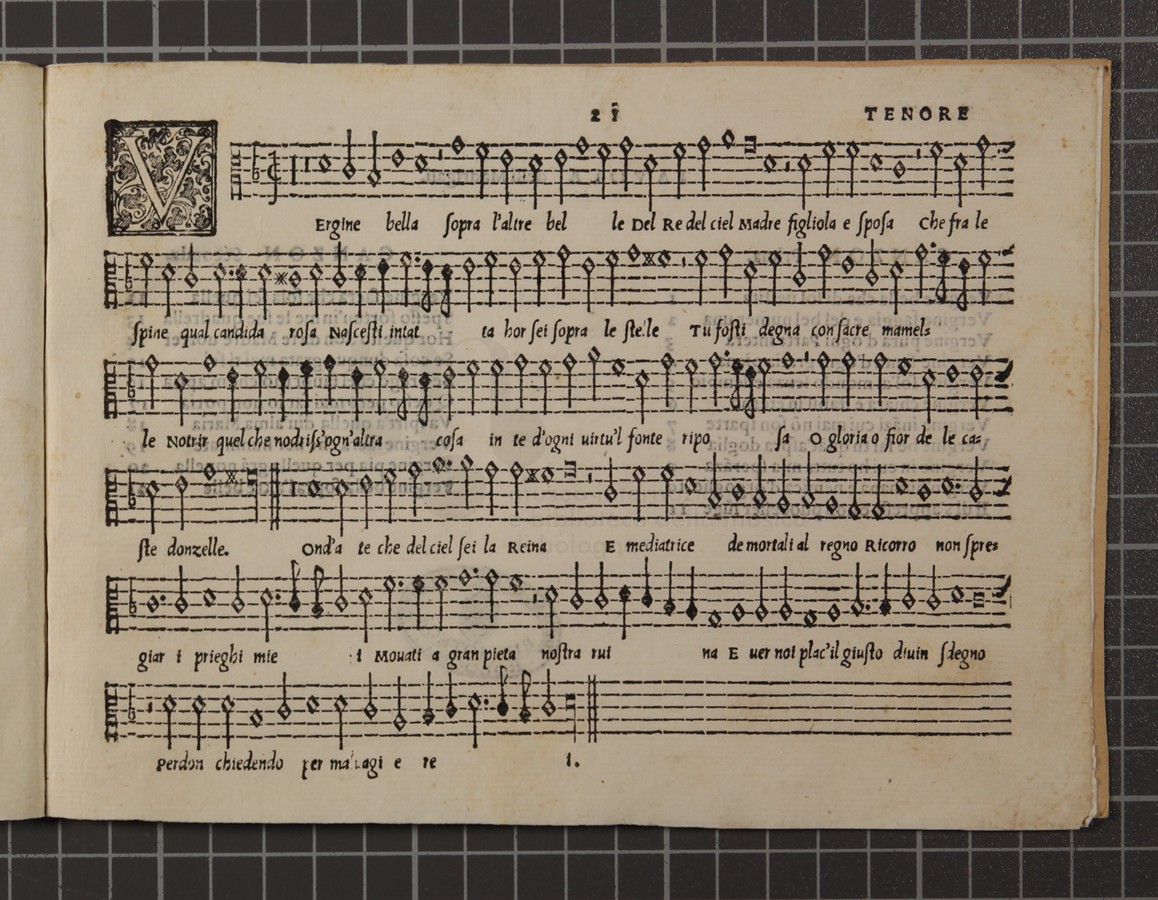 21 TENORE
VErgine bella sopra l'altre bel le Del Re del ciel Madre figliola e sposa Che fra le
spine qual candida rosa Nascesti intat ta hor sei sopra le ste.le Tu fosti degna con sacre mamels
le Notrir quel che nodriss'ogn'altra cosa in te d'ogni uirtu'l fonte ripo sa O gloria o fior de le cas
ste donzelle. Ond'a te che del ciel sei la Reina E mediatrice de mortali al regno Ricorro non spres
giar i prieghi mie i Mouati a gran pieta nostra rui na E uer noi plac'il giusto diuin sdegno
Perdon chiedendo per e re i.